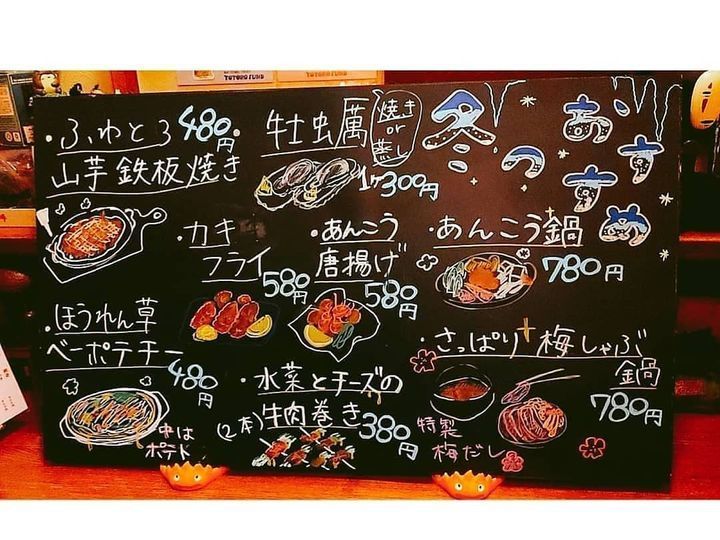 TOTORO FUND
冬の
おすすめ
・ふわとろ
山芋鉄板焼き
480円
・牡蛎
焼き
or
蒸し
1ケ300円
・カキ
フライ
580円
・あんこう
唐揚げ
580円
・あんこう鍋
780円
・ほうれん草
ベーポテチー
480円
中は
ポテト
・水菜とチーズの
牛肉巻き
(2本)
380円
・さっぱり梅しゃぶ
鍋
780円
特製
梅だし